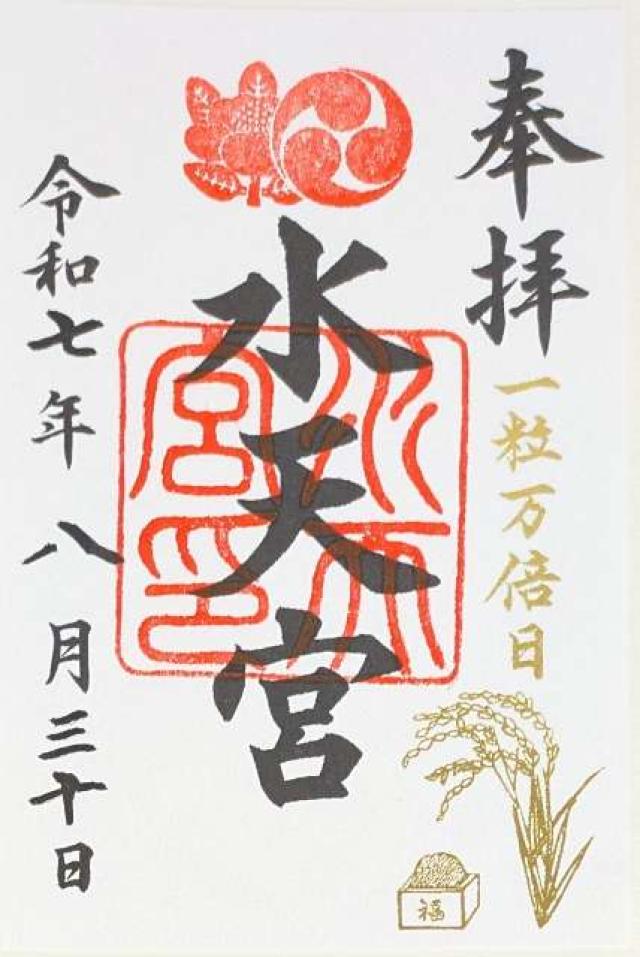 奉拝
一粒万倍日
水天宮
水天宮印
令和七年八月三十日
福